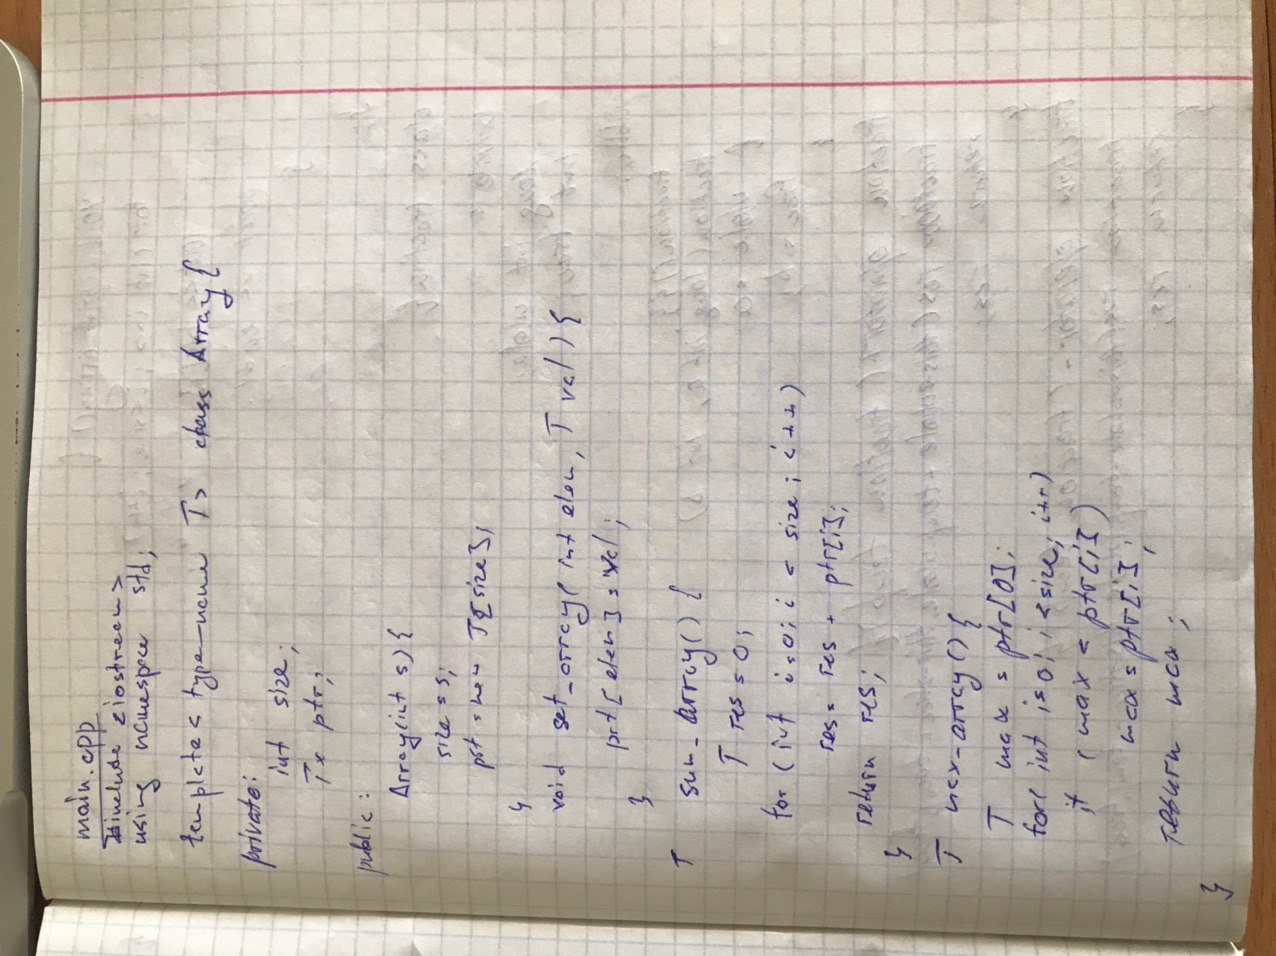 main.cpp
#include <iostream>
using namespace std;
template < type-name T> class Array{
private:
int size;
T* ptr;
public:
Array(int s){
size = s;
prt = new T[size];
}
void set_array( int elem, T val ) {
prt [ elem ] = val;
}
T sum_Array() {
T res = 0;
for ( int i=0; i < size ; i++)
res = res + ptr[i];
return res;
}
T max_array() {
T max = ptr[0];
for( int i=0; i <size; i++)
if ( max < ptr[i] )
max = ptr[i];
return max ;
}